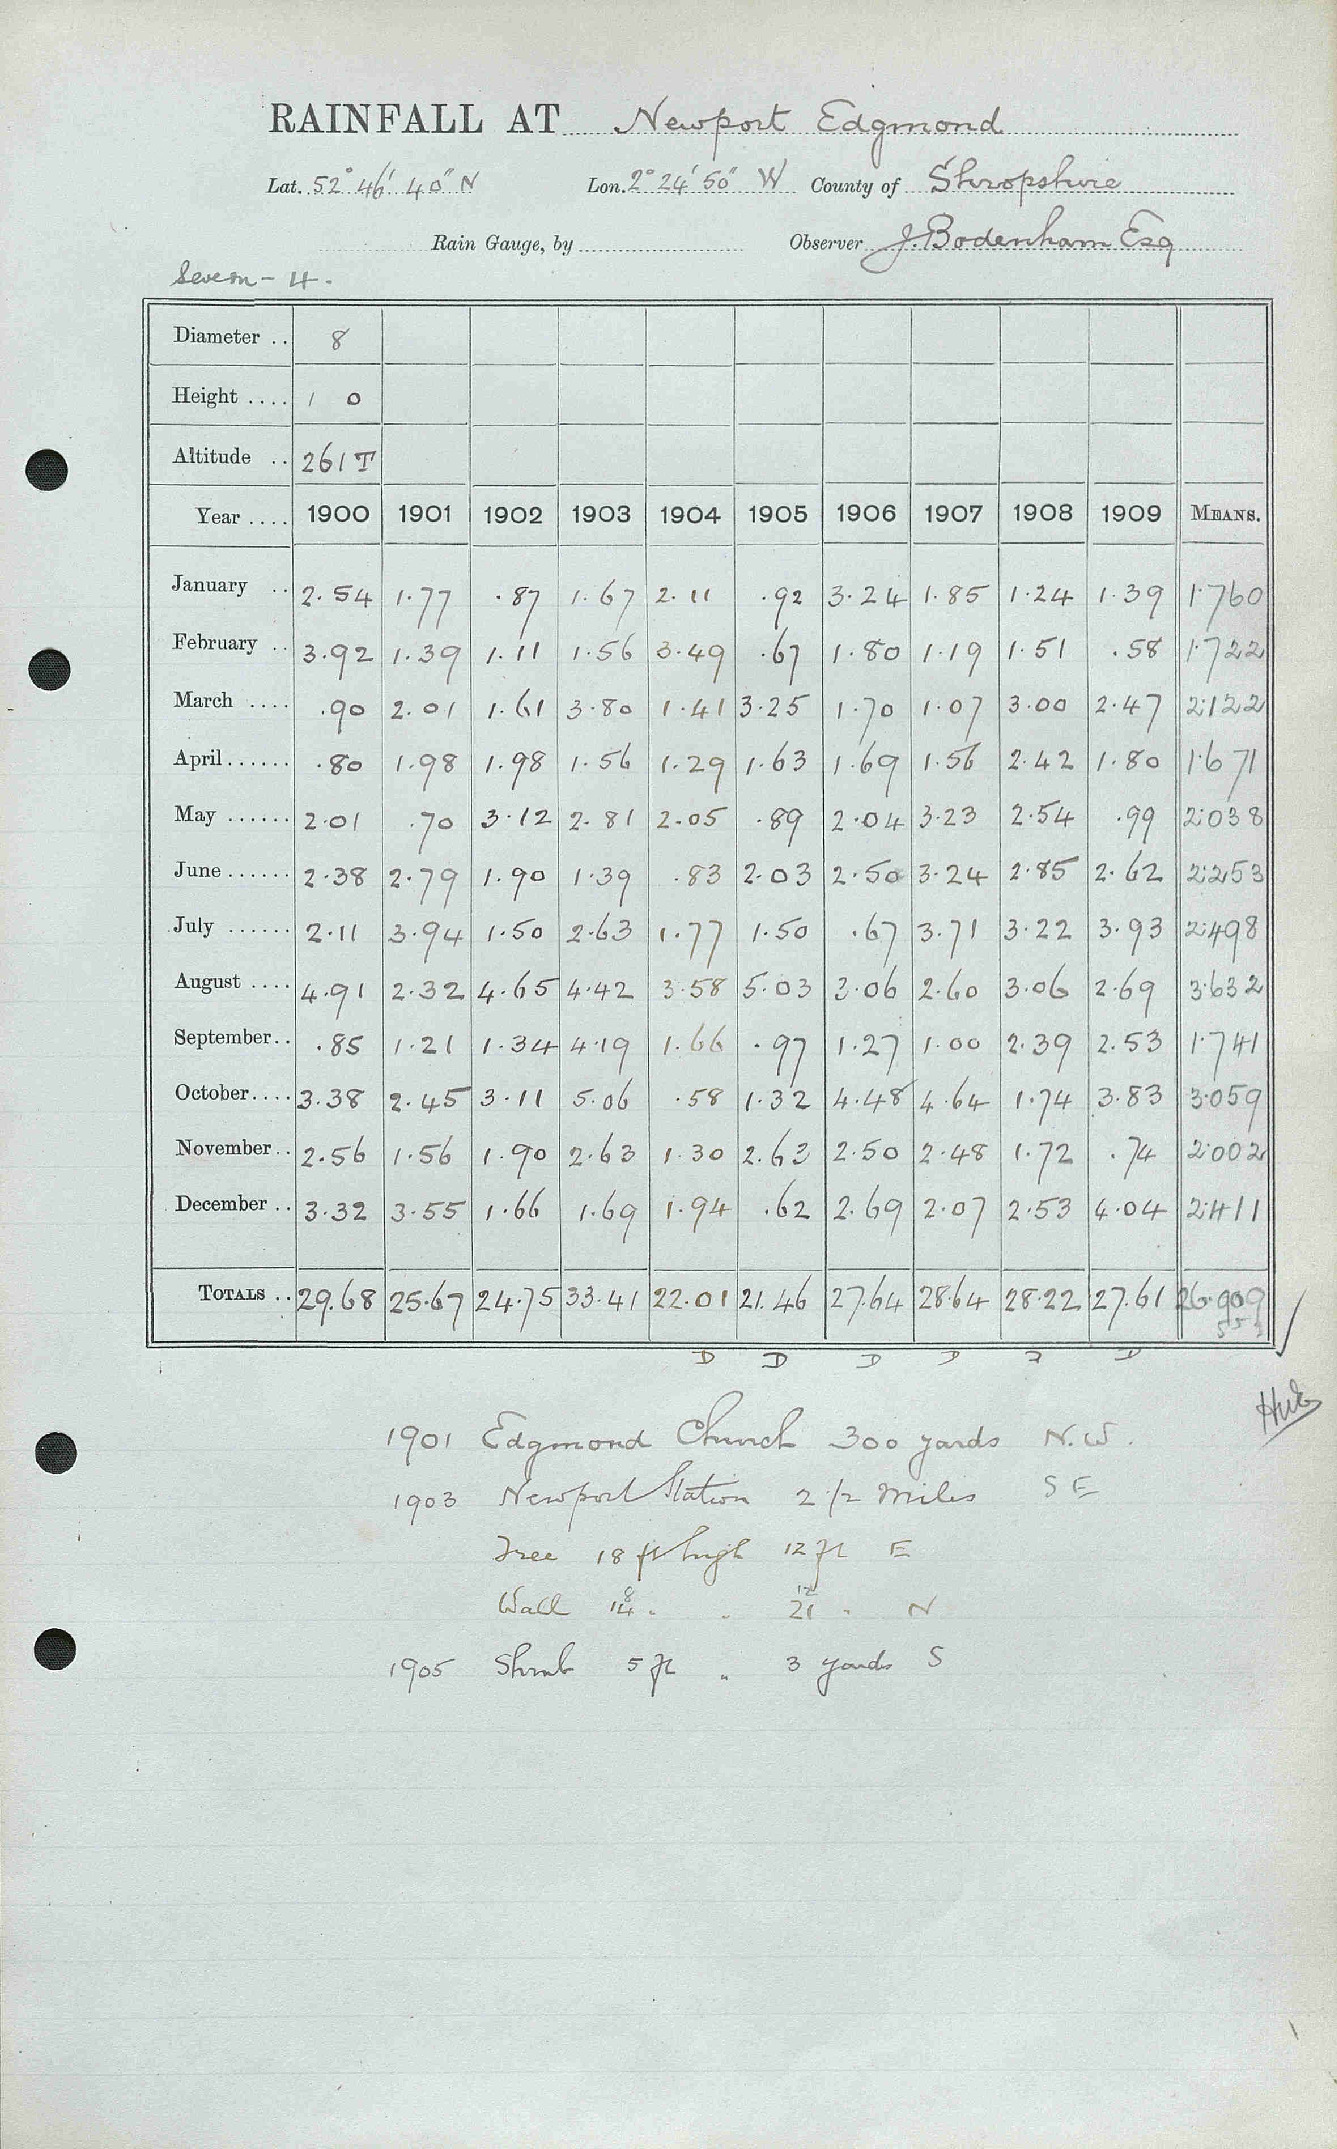 RAINFALL AT Newport Edgmond
Lat. 52° 46' 40" N Lon. 2° 24' 50" W County of Shropshire
Rain Gauge, by Observer J. Bodenham Esq
Severn - 4.
Diameter .. 8
Height .... 1 0
Altitude .. 261 T
Year .... 1900 1901 1902 1903 1904 1905 1906 1907 1908 1909 MEANS.
January .. 2.54 1.77 .87 1.67 2.11 .92 3.24 1.85 1.24 1.39 1.760
February .. 3.92 1.39 1.11 1.56 3.49 .67 1.80 1.19 1.51 .58 1.722
March .... .90 2.01 1.61 3.80 1.41 3.25 1.70 1.07 3.00 2.47 2.122
April...... .80 1.98 1.98 1.56 1.29 1.63 1.69 1.56 2.42 1.80 1.671
May ...... 2.01 .70 3.12 2.81 2.05 .89 2.04 3.23 2.54 .99 2.038
June...... 2.38 2.79 1.90 1.39 .83 2.03 2.50 3.24 2.85 2.62 2.253
July ...... 2.11 3.94 1.50 2.63 1.77 1.50 .67 3.71 3.22 3.93 2.498
August .... 4.91 2.32 4.65 4.42 3.58 5.03 3.06 2.60 3.06 2.69 3.632
September.. .85 1.21 1.34 4.19 1.66 .97 1.27 1.00 2.39 2.53 1.741
October.... 3.38 2.45 3.11 5.06 .58 1.32 4.48 4.64 1.74 3.83 3.059
November.. 2.56 1.56 1.90 2.63 1.30 2.63 2.50 2.48 1.72 .74 2.002
December .. 3.32 3.55 1.66 1.69 1.94 .62 2.69 2.07 2.53 4.04 2.411
TOTALS .. 29.68 25.67 24.75 33.41 22.01 21.46 27.64 28.64 28.22 27.61 26.909
D D D D D
1901 Edgmond Church 300 yards N.W.
1903 Newport Station 2 1/2 miles S E
Tree 18 ft high 12 ft E
8 12
Wall 14 . . 21 . N
1905 Shrub 5 ft " 3 yards S